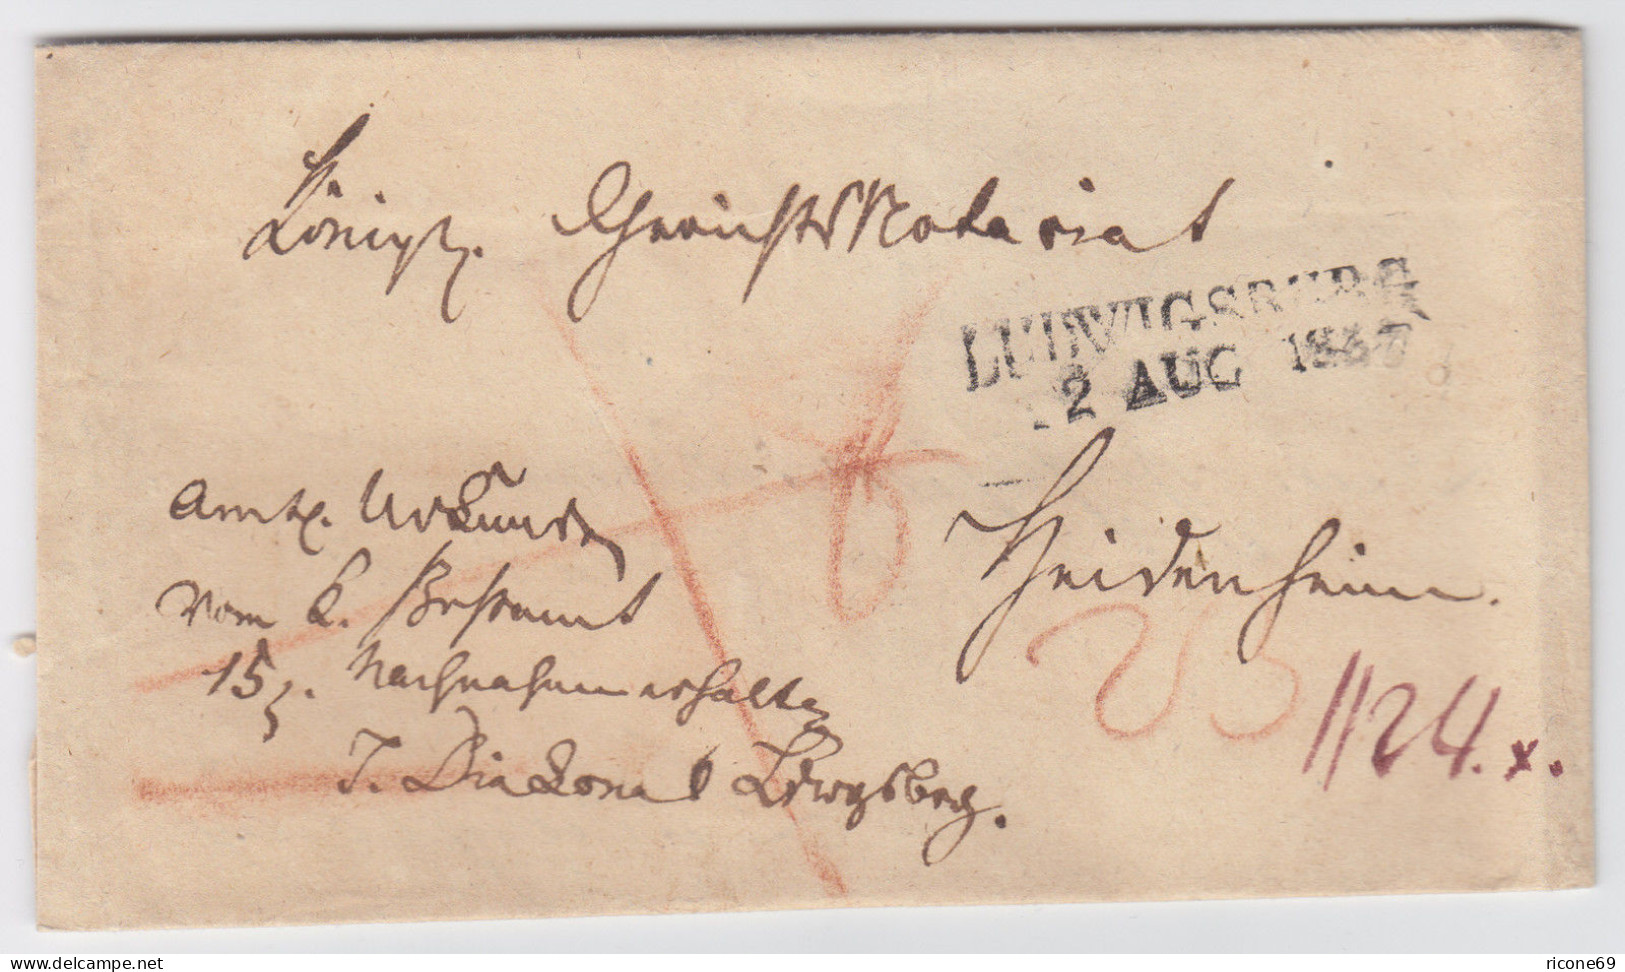 Königl. GerichtsNotariat
LUDWIGSBURG
2 AUG 1837
Heidenheim.
Amtl. Urkunden
vom k.
15 x. Nachnahme erhalten
T. Diakonat Ludwgsburg.
1124. x.
www.delcampe.net
ricone69